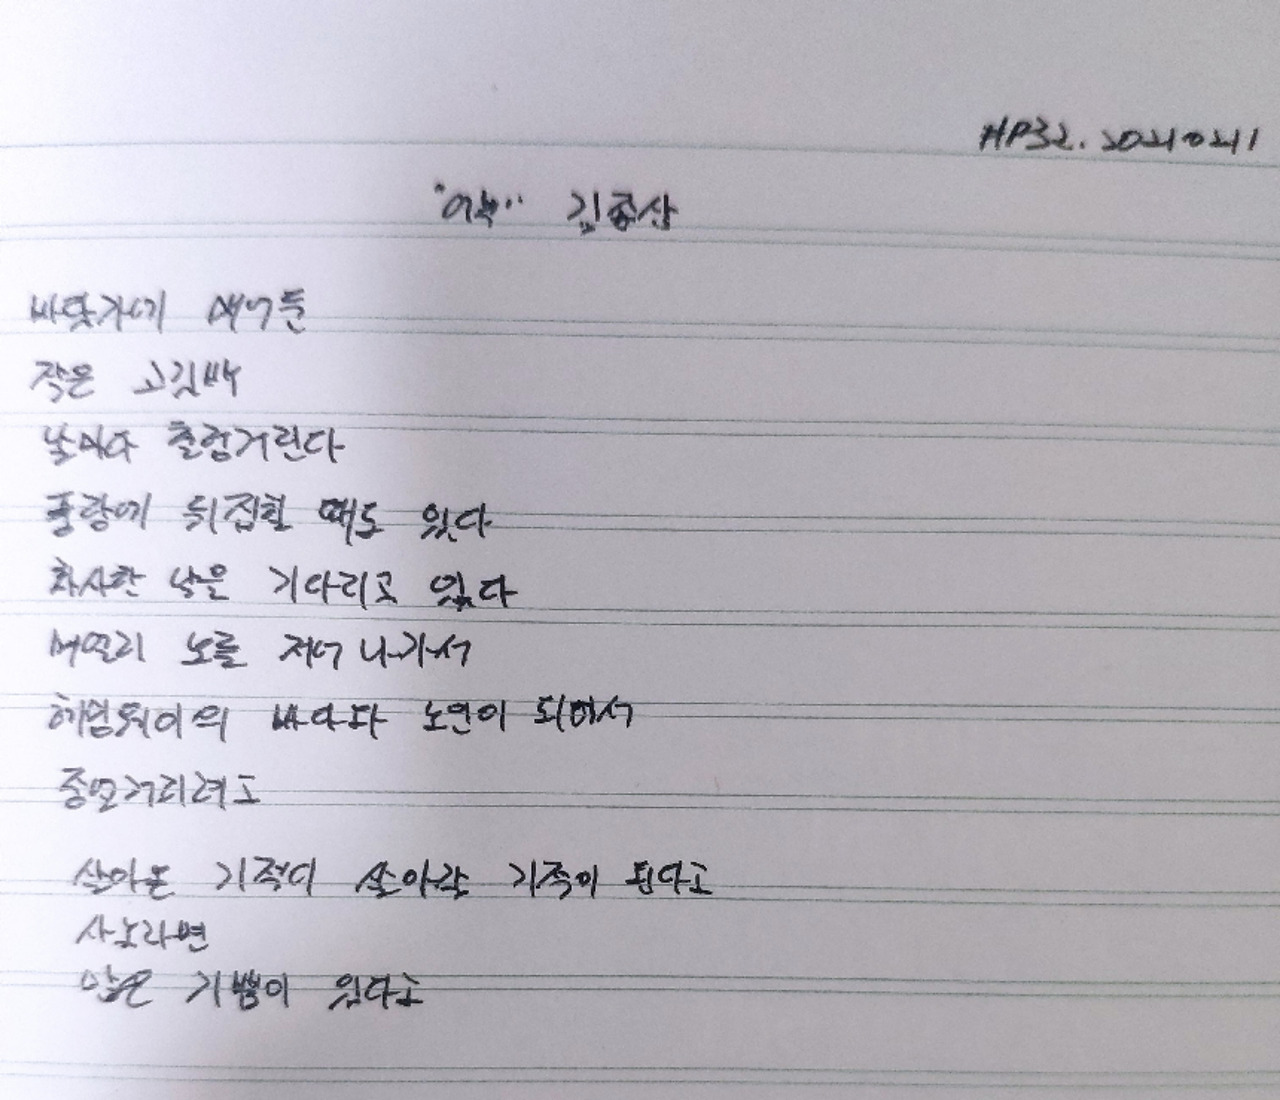 HP32. 20210211
"어부" 김종삼
바닷가에 매어둔
작은 고깃배
날마다 출렁거린다
풍랑에 뒤집힐 때도 있다
화사한 날을 기다리고 있다
머얼리 노를 저어 나가서
헤밍웨이의 바다와 노인이 되어서
중얼거리려고
살아온 기적이 살아갈 기적이 된다고
사노라면
많은 기쁨이 있다고